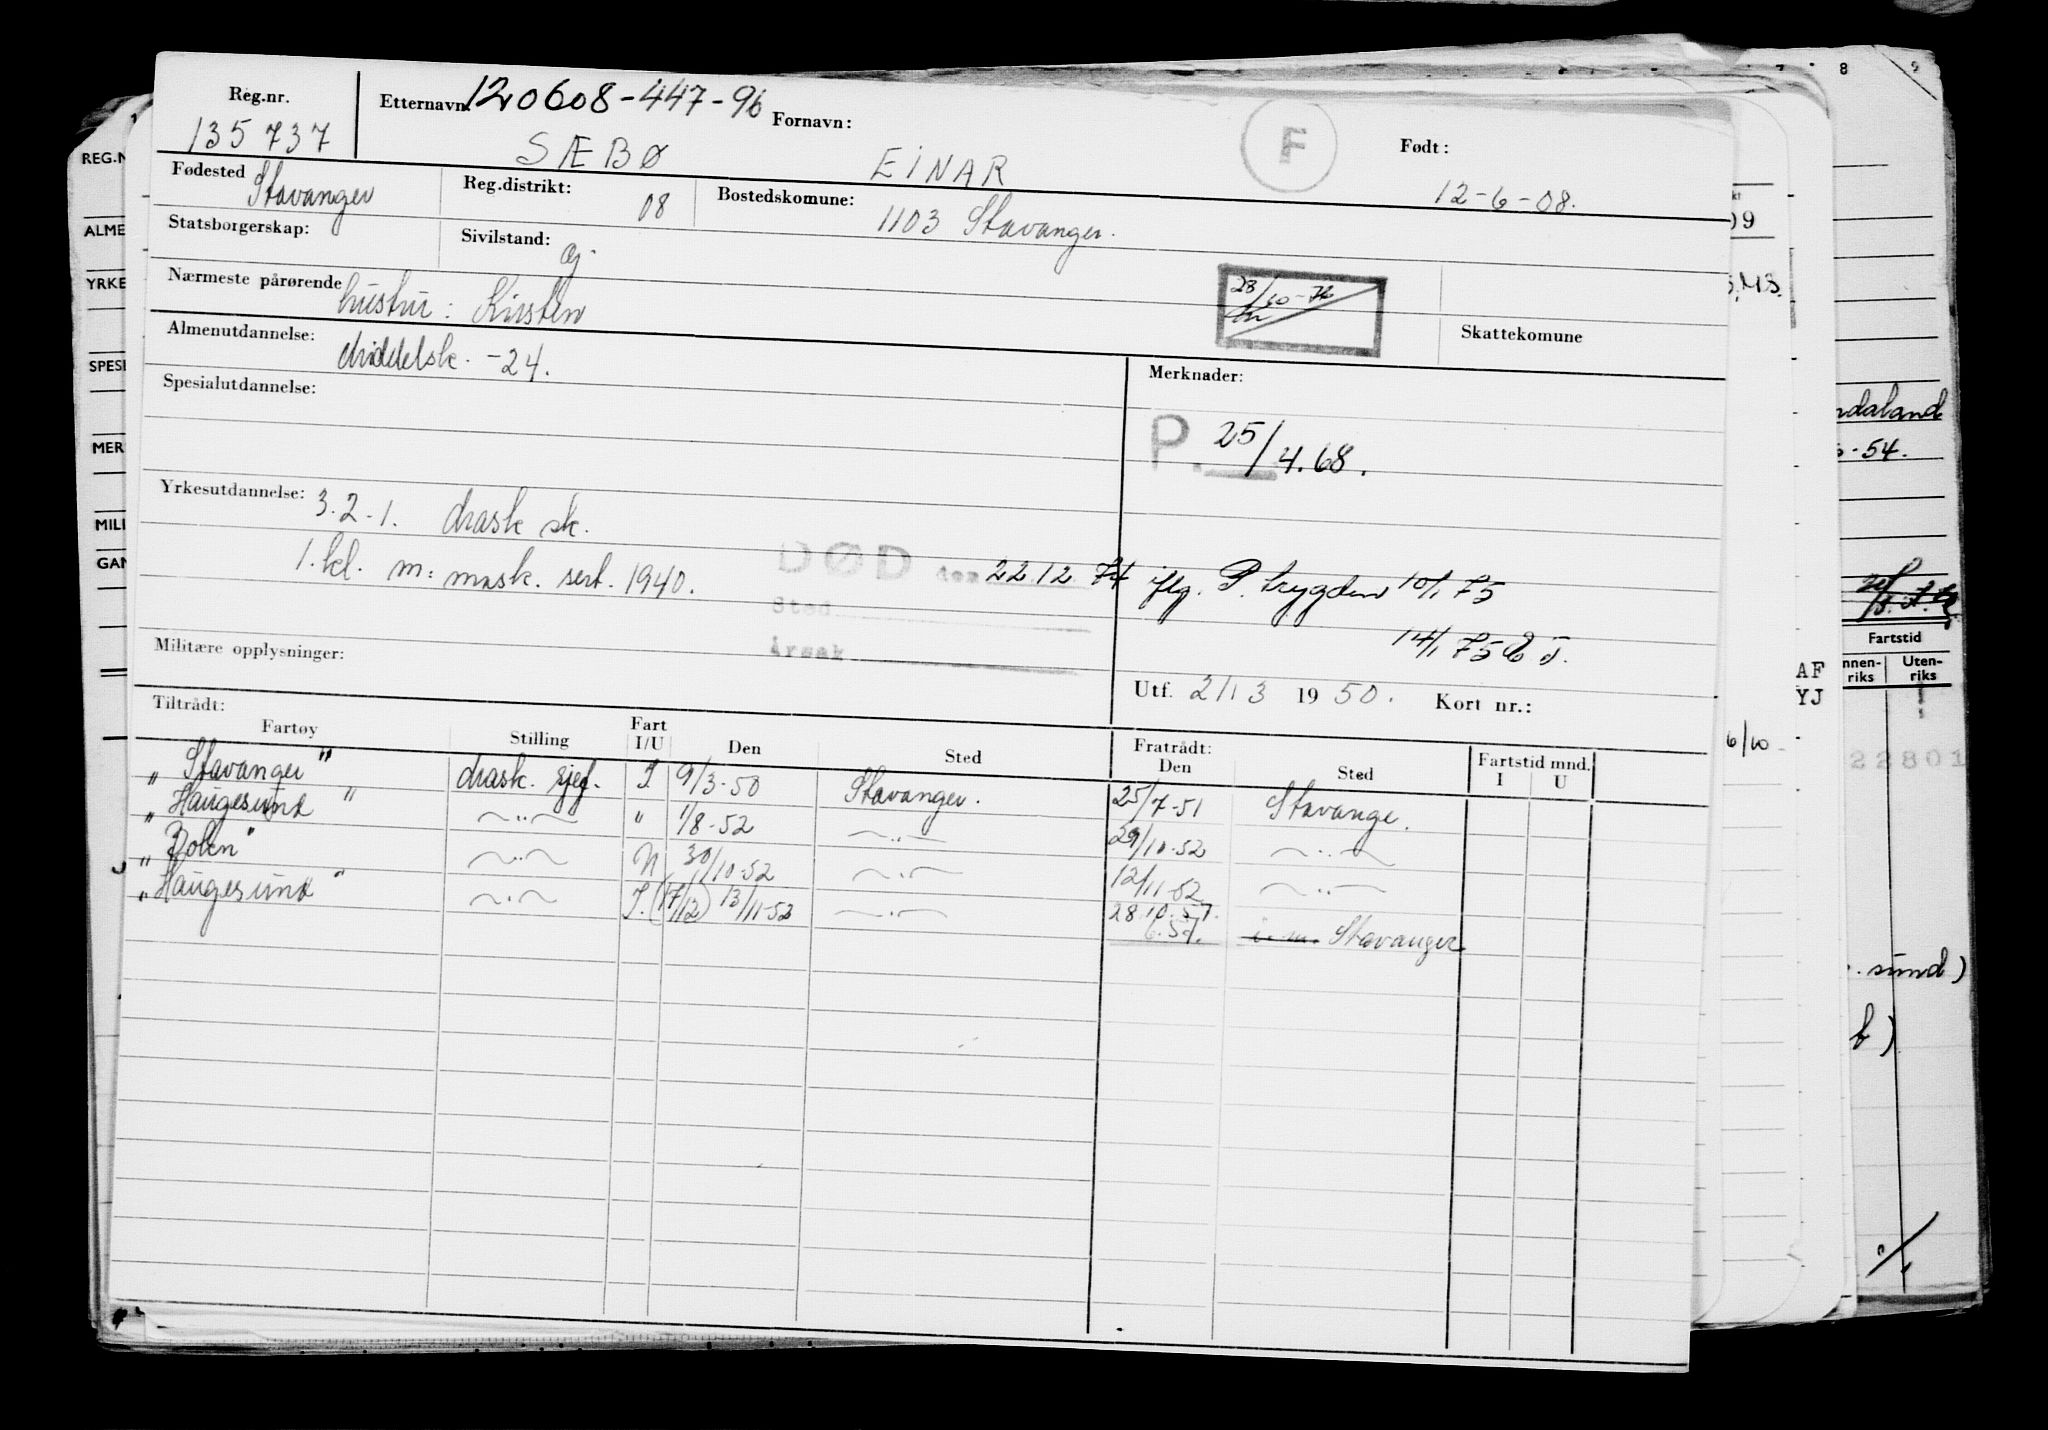 Reg.nr. Etternavn: 120608-447-96 Fornavn: F Født:
135737 SÆBØ EINAR 12-6-08.
Fødested Stavanger Reg.distrikt: 08 Bostedskomune: 1103 Stavanger.
Statsborgerskap: Sivilstand: g.
Nærmeste pårørende hustru: Kirsten 28/10-74 Skattekomune
Almenutdannelse: Middelsk. -24. Merknader:
Spesialutdannelse:
P. 25/4.68.
Yrkesutdannelse: 3.2-1. Mask sk.
1. kl. m: mask. sert. 1940.
DØD den 22.12.74 iflg. P. trygden 10/1 75
Sted
Årsak 14/1 75
Militære opplysninger:
Utf. 21/3 1950. Kort nr.:
Tiltrådt: Fratrådt: Fartstid mnd.
Fartøy Stilling Fart I/U Den Sted Den Sted I U
"Stavanger" Mask. sjef. I 9/3-50 Stavanger. 25/7-51 Stavange.
"Haugesund" —"— " 1/8-52 —"— 29/10-52 —"—
—"— N 30/10-52 —"— 12/11-52 —"—
"Haugesund" —"— I. (17/12) 13/11-52 —"— 28.10.57.
6.57. i. m. Stavanger
REG.N
ALME
YRKE
SPESI
MER
MILI
GAN
8 9
09
ndaland
-54.
Fartstid
nnen-riks Uten-riks
AF
YJ
6/10
22801
. sund)
b)